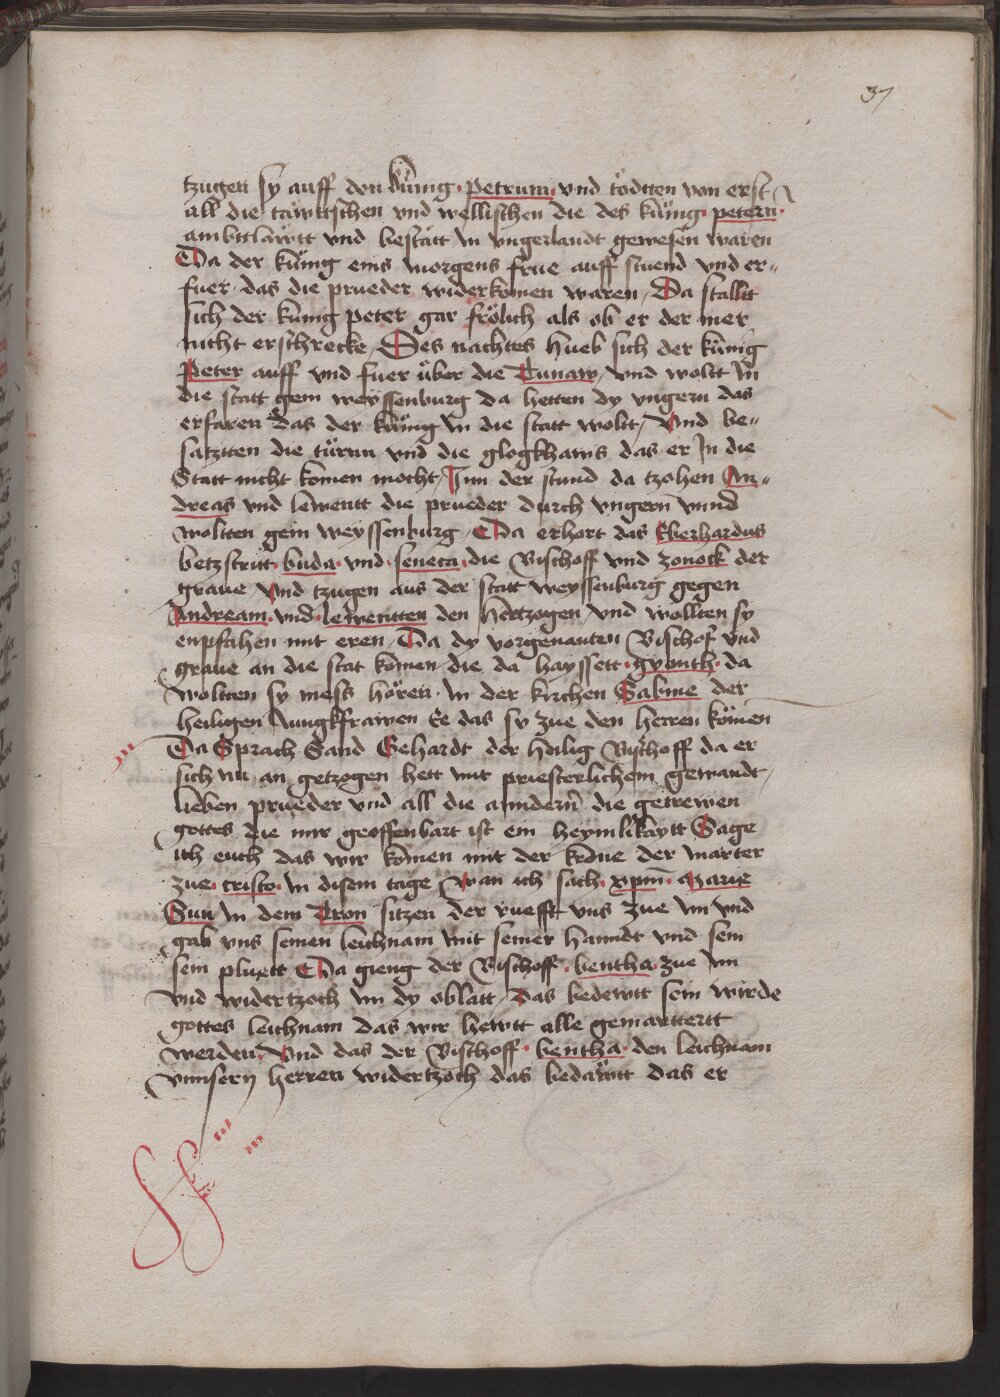 37
tzugen sy auff den künig · Petrum · vnd tödtten von erst
all die täwttschen vnd wellischen die des künig peters ·
ambttläwtt vnd bestätt in vngerlandt gewesen waren
Da der künig eins morgens frue auff stuend vnd er„
fuer · das die prueder widerkomen waren / Da stallt
sich der künig peter gar frölich als ob er der mer
nicht erschrecke / Des nachtes hueb sich der künig
Peter auff vnd fuer über die Tunaw / vnd wollt in
die statt gem weyssenburg da hetten dy vngern das
erfaren das der künig in die statt wollt / Vnd be„
satztten die türnn vnd die glogkhaws das er In die
Statt nicht komen mocht / Inn der stund da tzohen An„
dreas vnd lewentt die prueder durch vngern vnnd
woltten gein weyssenburg / Da erhort das Eberhardus
betzstritt · buda · vnd · seneca · die Bischoff vnd zonock der
graue Vnd tzugen aus der statt weyssenburg gegen
Andream · vnd · lewentten den hertzogen / vnd wollten sy
enpfahen mit eren / Da dy vorgenanten Bischof vnd
graue an die stat komen die da hayssett · gyonth · da
woltten sy mess hören in der kirchen Sabine der
heiligen Jungkfrawen Ee das sy zue den herren kömen
Da Sprach Sand Gehardt der heilig Bischoff da er
sich nu an getzogen hett mit priesterlichem gewandt /
lieben prueder vnd all die anndern die getrewen
gottes die mir geoffenbart ist ein heymlikaytt Sage
ich euch das wir komen mit der krone der marter
zue · cristo · in disem tage / wan ich sach · xpm · Marie
Sun in dem Tron sitzen der ruefft vns zue im vnd
gab vns seinen leichnam mit seiner hanndt vnd sein
sein pluett Da gieng der Bischoff · bentha · zue im
vnd widertzoch im dy oblatt / das bedewtt sein wirde
gottes leichnam das wir hewtt alle gemarttertt
werden / Vnd das der Bischoff · bentha · den leichnam
vnnsern herren widertzoch das bedäwtt das er